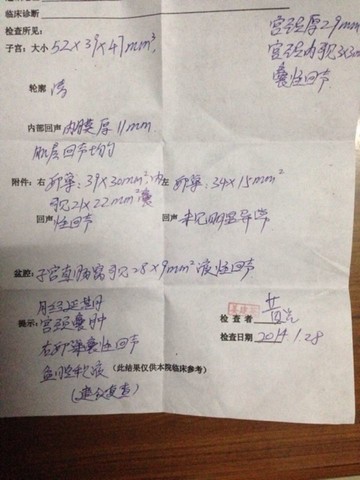 临床诊断
检查所见：
子宫：大小 52×39×47mm³,
宫颈厚29mm
宫颈内见3×3mm
囊性回声
轮廓 清
内部回声 内膜厚11mm
肌层回声均匀
附件：右 卵巢：39×30mm²,内 左 卵巢：34×15mm²
见21×22mm²囊
回声 性回声 回声 未见明显异常
盆腔：子宫直肠窝见28×9mm²液性回声
提示：宫颈囊肿
右卵巢囊性回声
盆腔积液 (此结果仅供本院临床参考)
(建议复查)
检查者
检查日期 2014.1.28